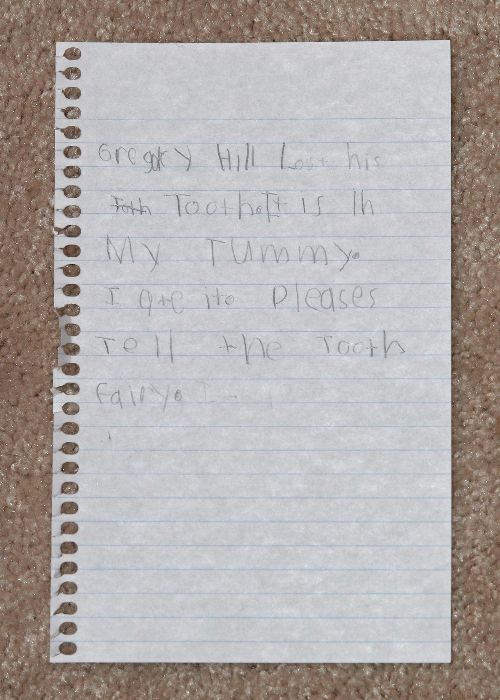 Gregory Hill Lost his
Tooth. It is in
My Tummy.
I ate it. Pleases
Tell the Tooth
fairy. I